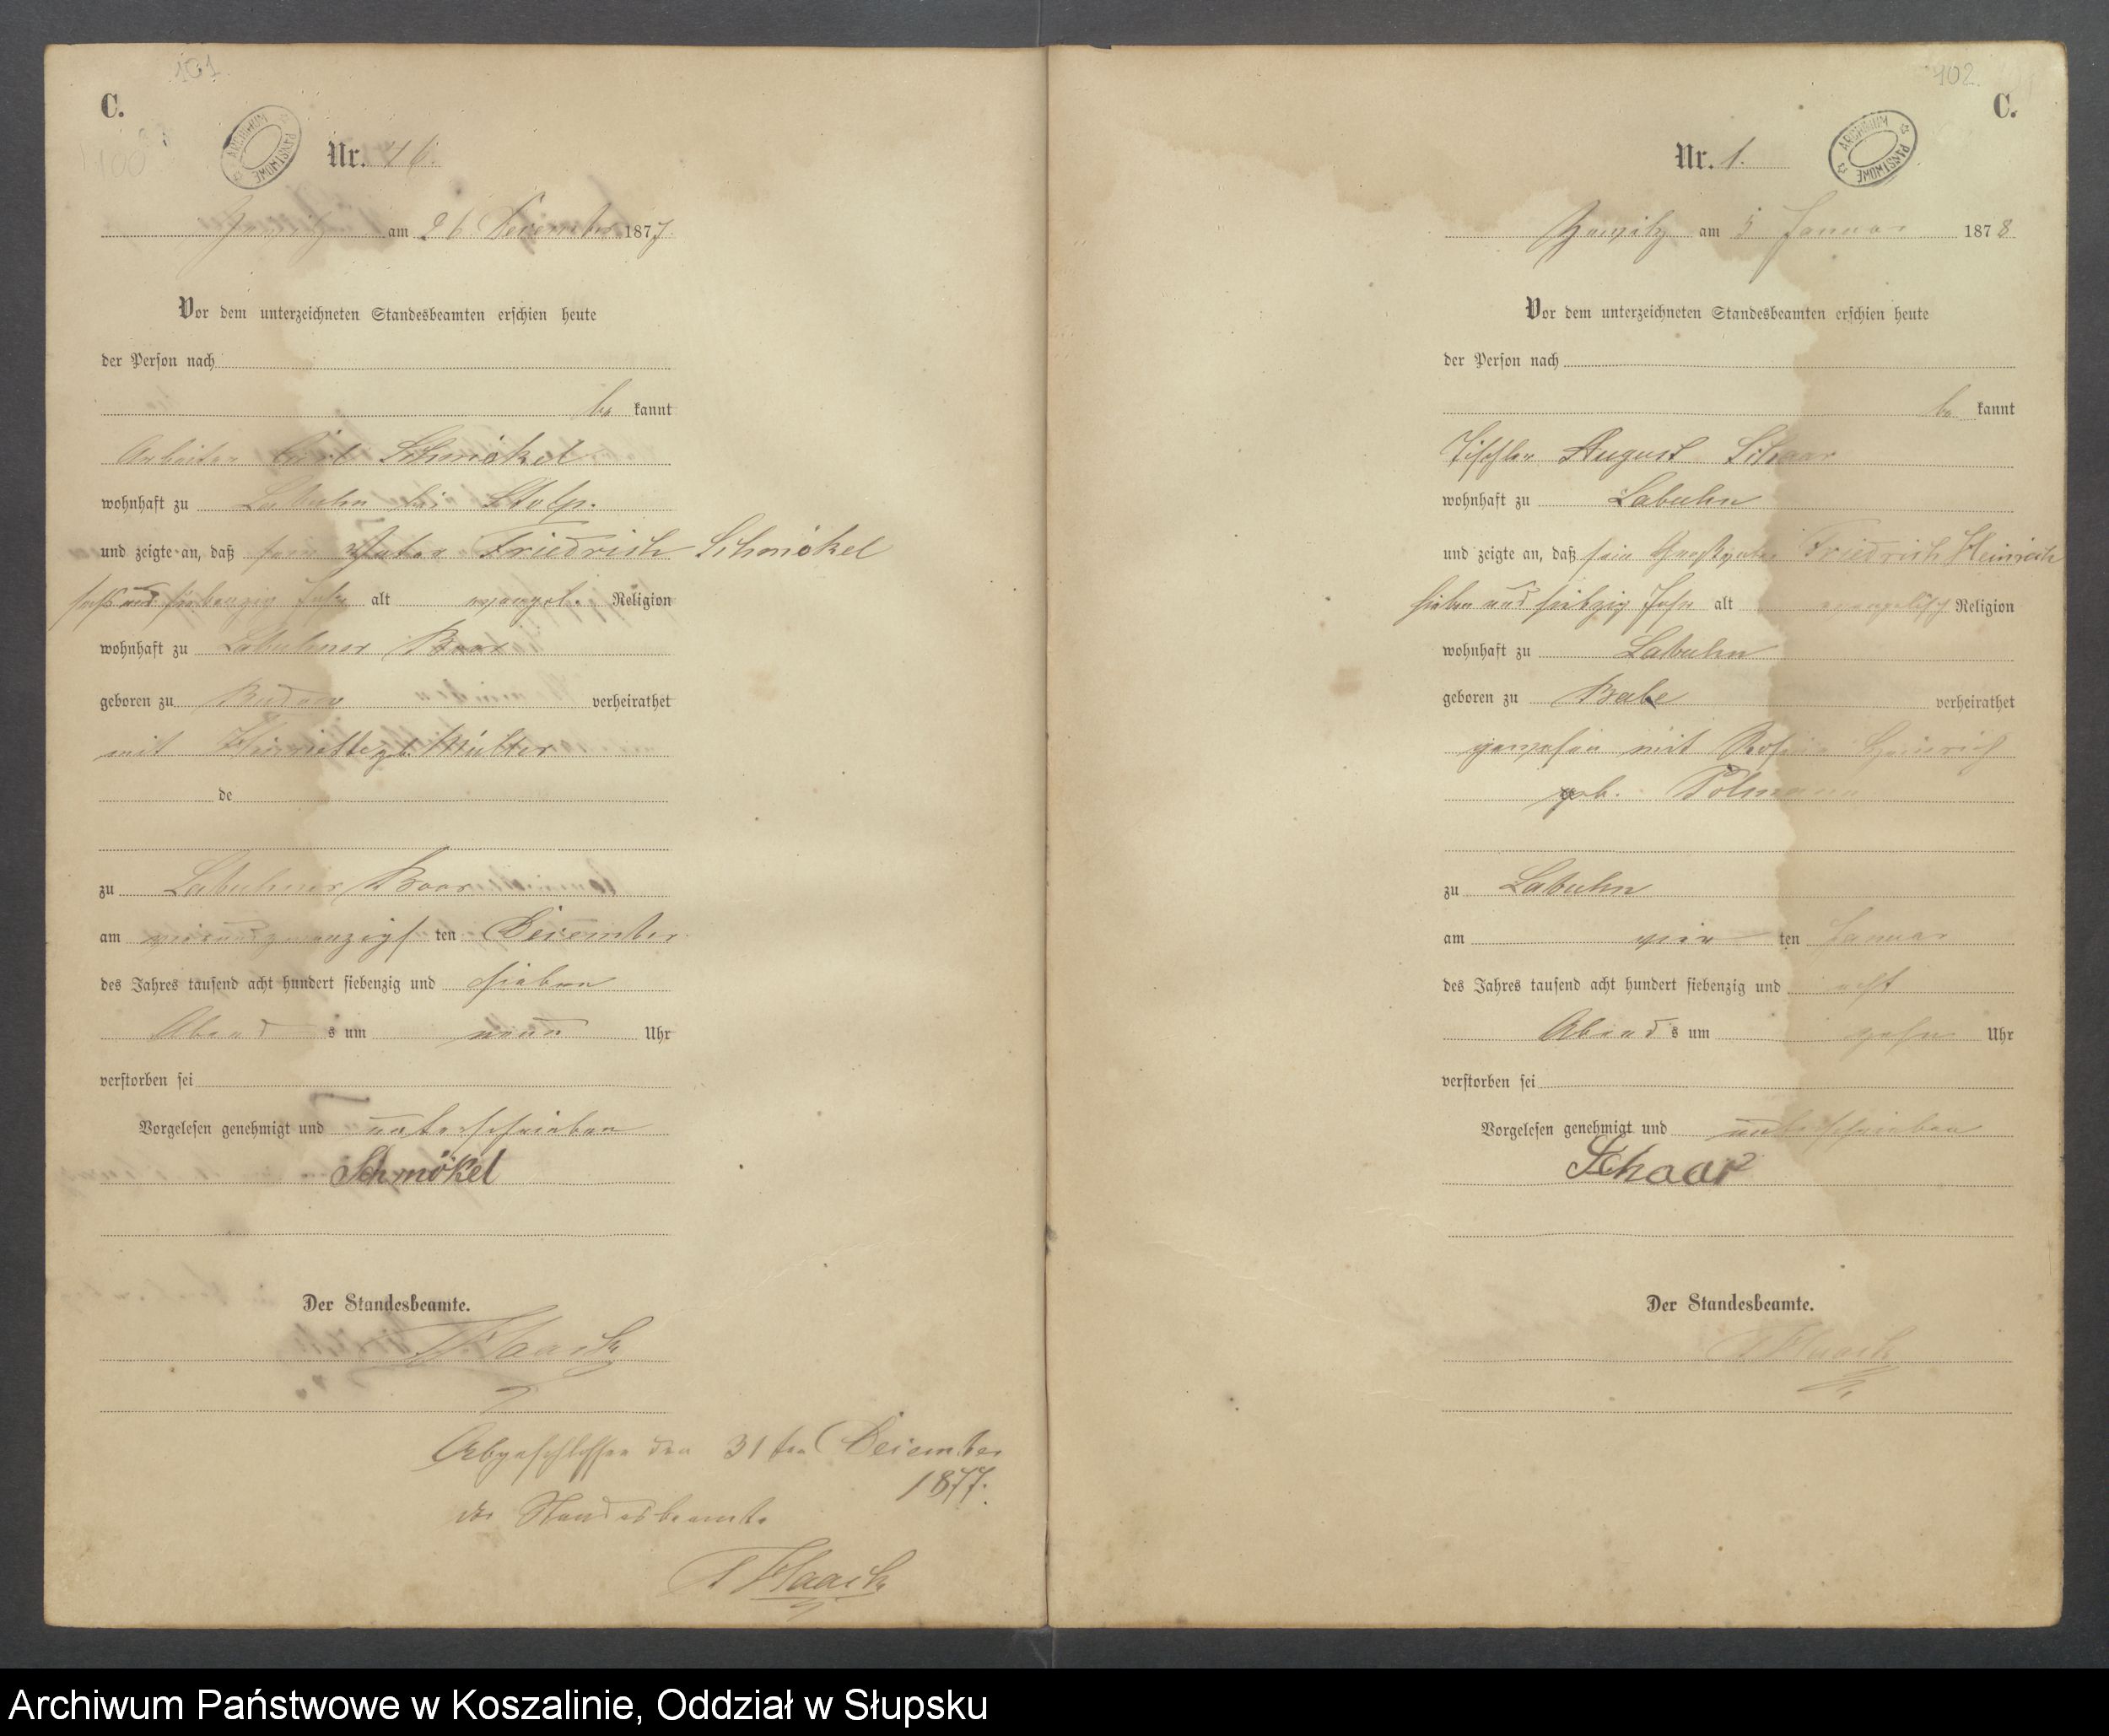 101
C.
ARCHIWUM PAŃSTWOWE
Nr. 16.
am 26 December 1877.
Vor dem unterzeichneten Standesbeamten erschien heute
der Person nach
be kannt
Arbeiter Carl Schmökel
wohnhaft zu Labuhn bei Stolp.
und zeigte an, daß sein Vater Friedrich Schmökel
sechs und siebenzig Jahr alt evangel. Religion
wohnhaft zu Labuhner Boor
geboren zu Budow verheirathet
mit Henriette geb. Müller
de
zu Labuhner Boor
am ten December
des Jahres tausend acht hundert siebenzig und sieben
Abend s um neun Uhr
verstorben sei
Vorgelesen genehmigt und unterschrieben
Schmökel
Der Standesbeamte.
Haack
Abgeschlossen den 31ten December
1877.
der Standesbeamte
Haack
102
C.
ARCHIWUM PAŃSTWOWE
Nr. 1.
am 5 Januar 1878
Vor dem unterzeichneten Standesbeamten erschien heute
der Person nach
be kannt
Tischler August Schaar
wohnhaft zu Labuhn
und zeigte an, daß sein Großvater Friedrich Heinrich
sieben und siebzig Jahr alt evangelisch Religion
wohnhaft zu Labuhn
geboren zu verheirathet
gewesen mit Heinrich
geb. Polmann
zu Labuhn
am vier ten Januar
des Jahres tausend acht hundert siebenzig und acht
Abend s um zehn Uhr
verstorben sei
Vorgelesen genehmigt und unterschrieben
Schaar
Der Standesbeamte.
Haack
Archiwum Państwowe w Koszalinie, Oddział w Słupsku